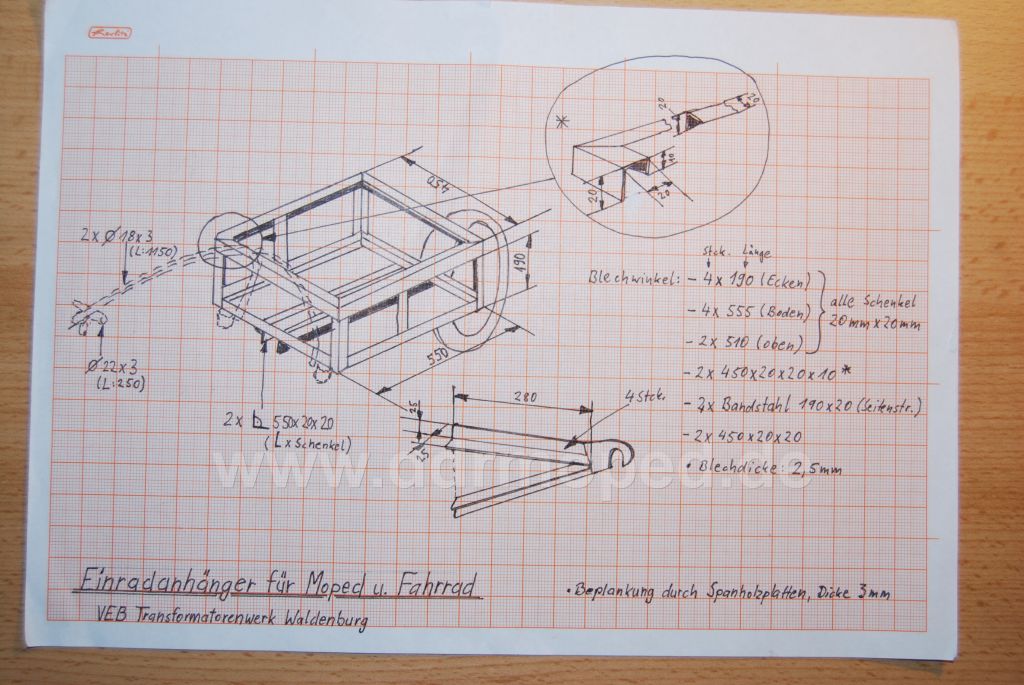 Herlitz
*
20
20
20
10
20
454
190
550
2 x Ø 18 x 3
(L:1150)
Ø 22 x 3
(L:250)
2 x 550x20x20
(L x Schenkel)
Stck. Länge
Blechwinkel: - 4 x 190 (Ecken)
- 4 x 555 (Boden)
- 2 x 510 (oben)
alle Schenkel
20mm x 20mm
- 2 x 450 x 20 x 20 x 10 *
- 2x Bandstahl 190 x 20 (Seitenstr.)
- 2 x 450 x 20 x 20
• Blechdicke: 2,5mm
280
4 Stck.
25
25
www.ddrmoped.de
Einradanhänger für Moped u. Fahrrad
VEB Transformatorenwerk Waldenburg
• Beplankung durch Spanholzplatten, Dicke 3mm